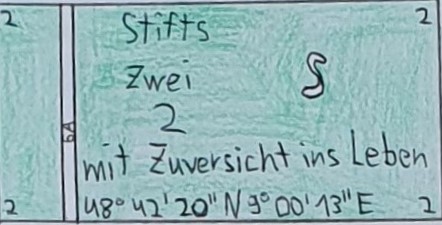 2
2
Stifts
2
Zwei
S
2
mit Zuversicht ins Leben
48°42'20" N 9°00'13" E
2